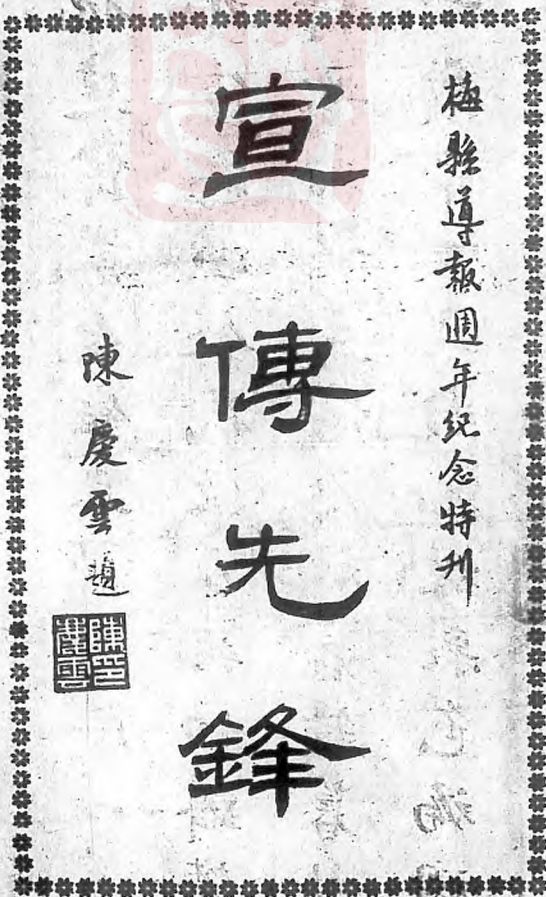 梅縣導報週年紀念特刊
宣傳先鋒
陳慶雲題
陳慶雲印